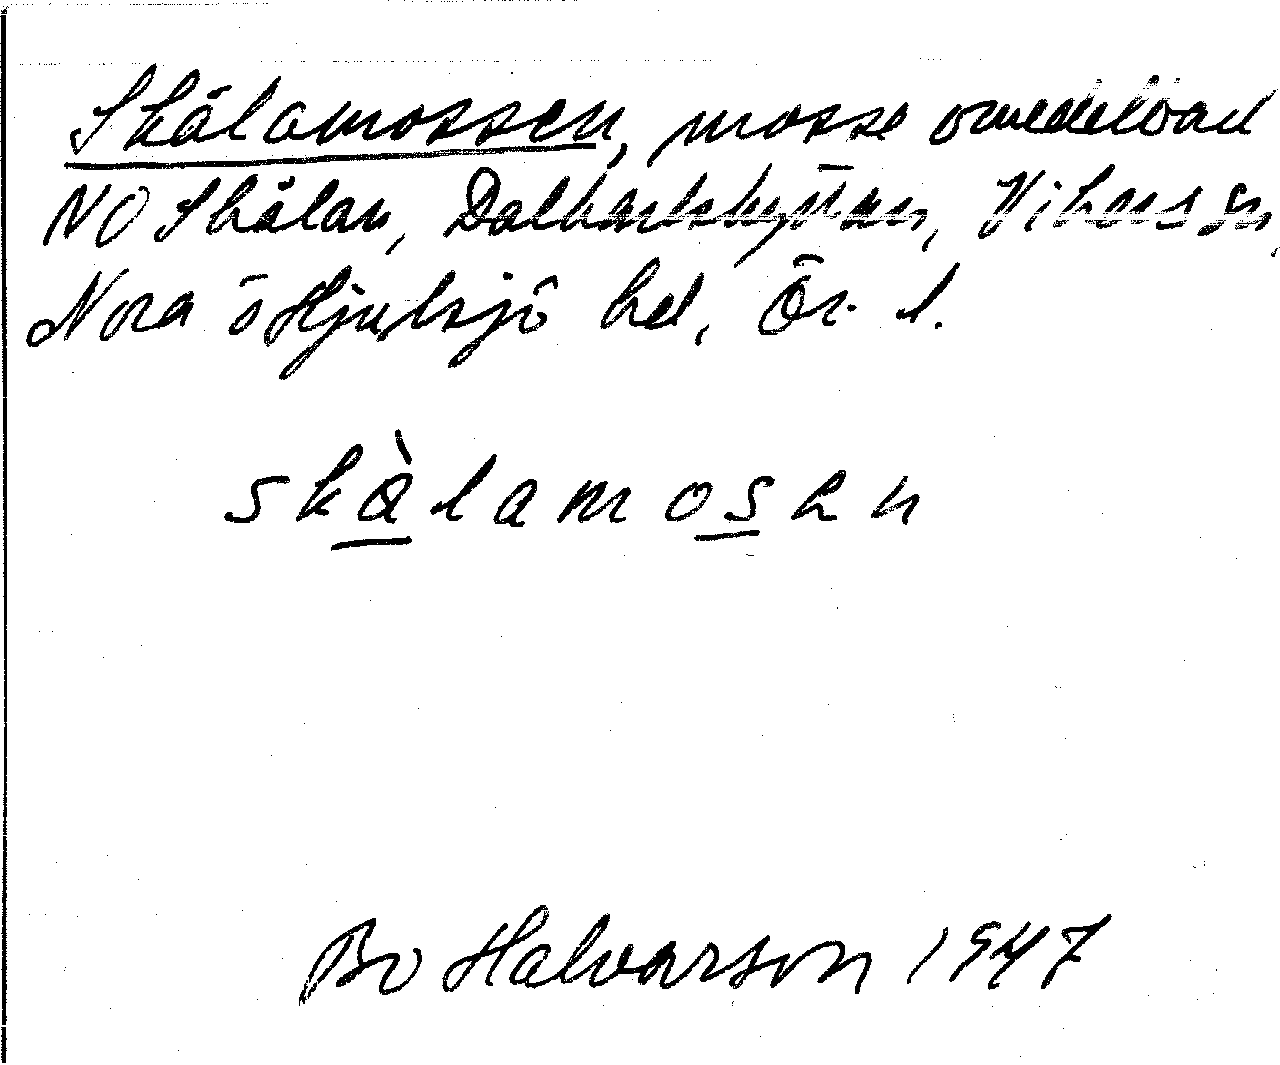 Skålamossen, mosse omedelbart
NO Skålan, Dalkarlshyttan, Vikers sn,
Nora o Hjulsjö hd, Ör. l.
skàlamosen
Bo Halvarson 1947